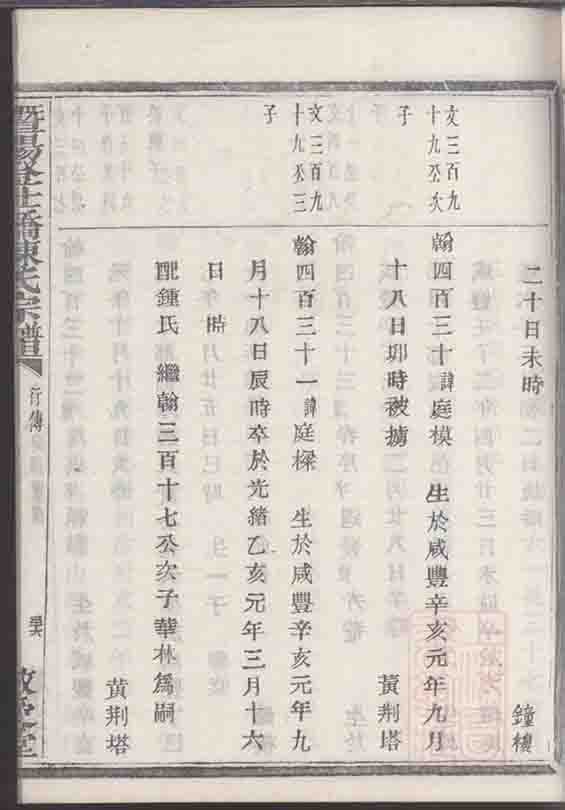 二十日未時
鐘樓
文三百九
十九公次
子
翰四百三十諱庭模 生於咸豐辛亥元年九月
十八日卯時被擄
黃荆塔
文三百九
十九公三
子
翰四百三十一諱庭樑 生於咸豐辛亥元年九
月十八日辰時卒於光緒乙亥元年三月十六
日 時
配鍾氏 繼翰三百十七公次子華林爲嗣
黃荆塔
暨陽 橋陳氏宗譜
行傳